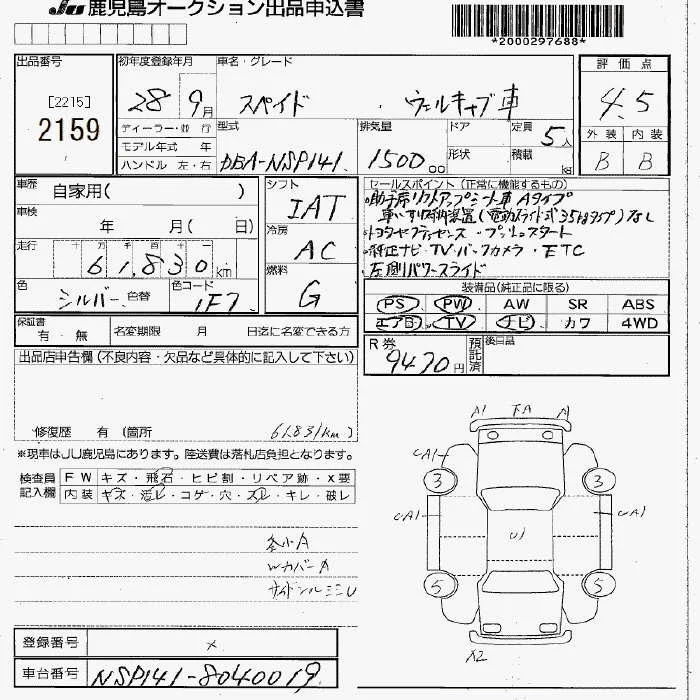 JU 鹿児島オークション出品申込書
*2000297688*
出品番号
[2215]
2159
初年度登録年月
28 9月
車名・グレード
スペイド ウェルキャブ車
評価点
4.5
外装 内装
B B
ディーラー・並 行
モデル年式 年
ハンドル 左・右
型式
DBA-NSP141
排気量
1500 cc
ドア
形状
定員
5人
積載
kg
車歴
自家用( )
車検
年 月( 日)
走行
十万千百十
61,830km
色
シルバー 色替
色コード
1F7
シフト
IAT
冷房
AC
燃料
G
セールスポイント (正常に機能するもの)
助手席リフトアップシート車 Aタイプ
車いす収納装置(電動スライド式35kgタイプ)なし
トヨタセーフティセンス・プッシュスタート
純正ナビ・TV・バックカメラ・ETC
左側パワースライド
装備品(純正品に限る)
PS PW AW SR ABS
エアB TV ナビ カワ 4WD
保証書
有・無
名変期限 月 日迄に名変できる方
R券
9470円
預託済
後日品
出品店申告欄 (不良内容・欠品など具体的に記入して下さい)
修復歴 有 (箇所 61831km)
※現車はJU鹿児島にあります。陸送費は落札店負担となります。
検査員記入欄
FW キズ・飛石・ヒビ割・リペア跡・X要
内装 キズ・汚レ・コゲ・穴・スレ・キレ・破レ
各小A
Wカバー A
サイドシルミミU
A1 下A A
UA1
3 3
UA1 U1 UA1
5 5
X2
登録番号 ×
車台番号 NSP141-8040019